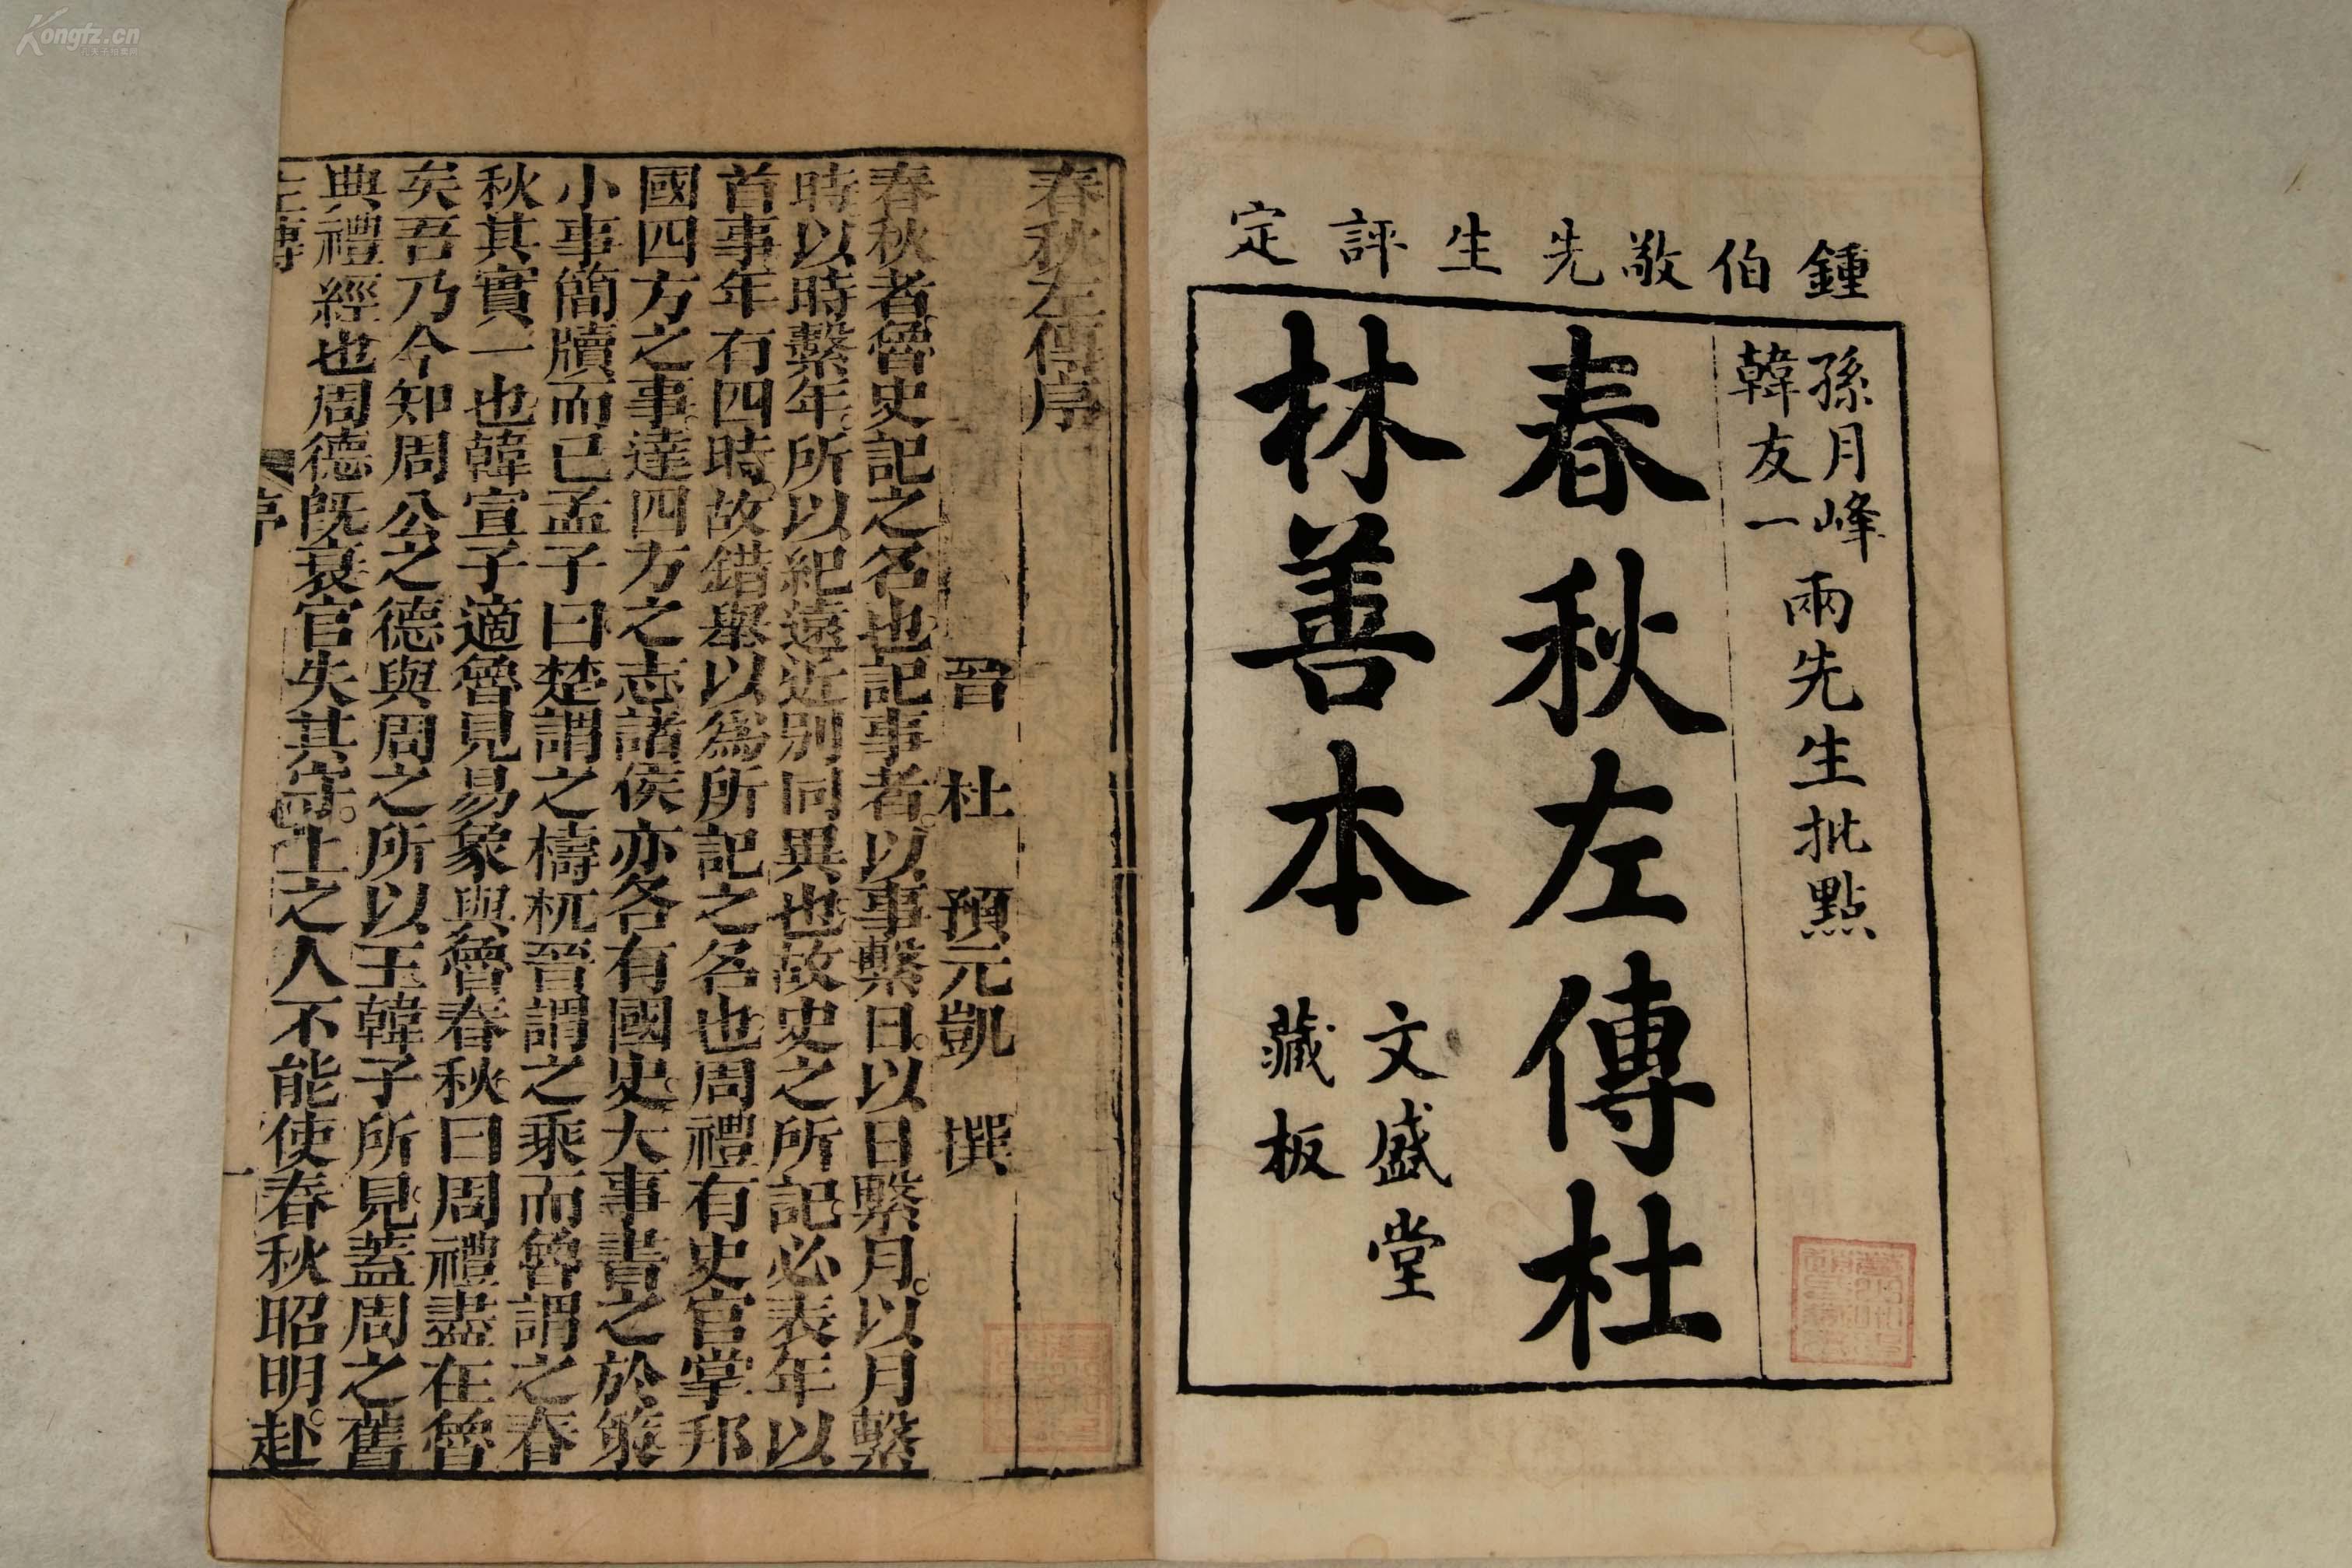 鍾伯敬先生評定
孫月峰
韓友一
兩先生批點
春秋左傳杜
林善本
文盛堂
藏板
春秋左傳序
晉 杜 預元凱 撰
春秋者魯史記之名也記事者。以事繫日。以日繫月。以月繫
時以時繫年。所以紀遠近別同異也故史之所記必表年以
首事年有四時。故錯舉以爲所記之名也周禮有史官掌邦
國四方之事。達四方之志諸侯亦各有國史。大事書之於策
小事簡牘而已孟子曰楚謂之檮杌晉謂之乘而魯謂之春
秋其實一也韓宣子適魯見易象與魯春秋。曰周禮盡在魯
矣吾乃今知周公之德與周之所以王韓子所見。蓋周之舊
典禮經也周德旣衰官失其守。上之人不能使春秋昭明。赴
左傳 序 一
Kongfz.cn